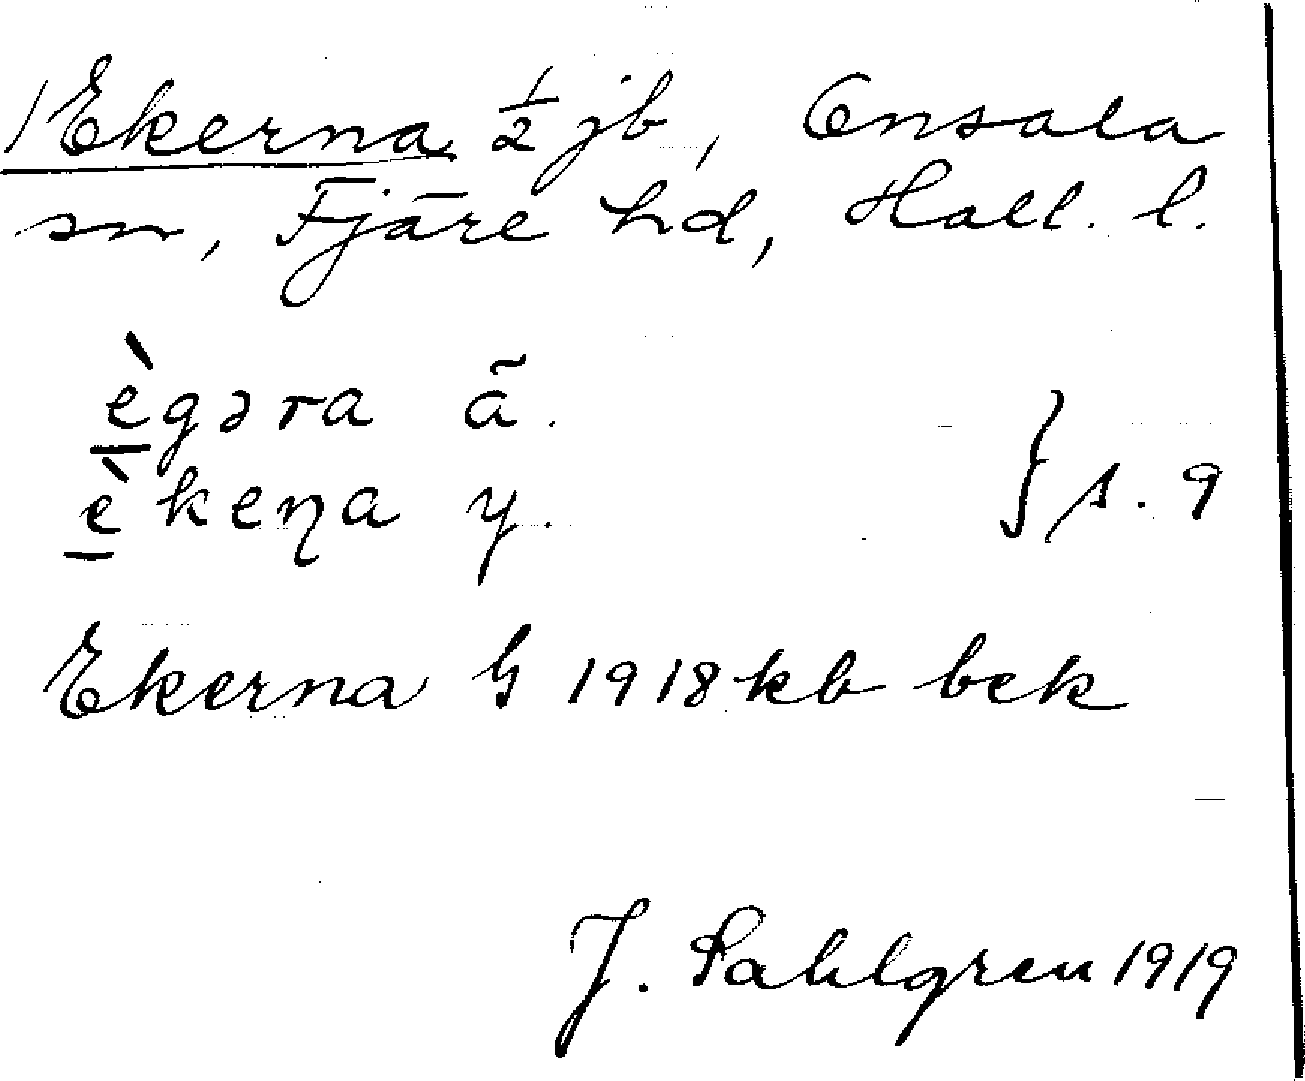 Ekerna ½ jb, Onsala
sn, Fjäre hd, Hall. l.
ègəra ã.
èkeƞa y. } s. 9
Ekerna G 1918 kb bek
J. Sahlgren 1919